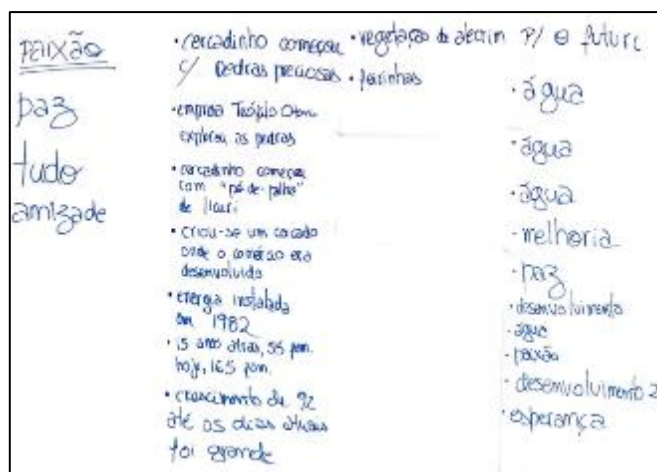 paixão
paz
tudo
amizade
• cercadinho começou
c/ pedras preciosas
• empresa Teófilo Otoni
explorou as pedras
• cercadinho começou
com "pé-de-palha"
de licuri
• criou-se um cercado
onde o comércio era
desenvolvido
• energia instalada
em 1982
• 15 anos atrás, 55 fam.
hoje, 165 fam.
• crescimento de 92
até os dias atuais
foi grande
• vegetação de alecrim
• feirinhas
P/ o futuro
• água
• água
• água
• melhoria
• paz
• desenvolvimento
• água
• paixão
• desenvolvimento 2
• esperança